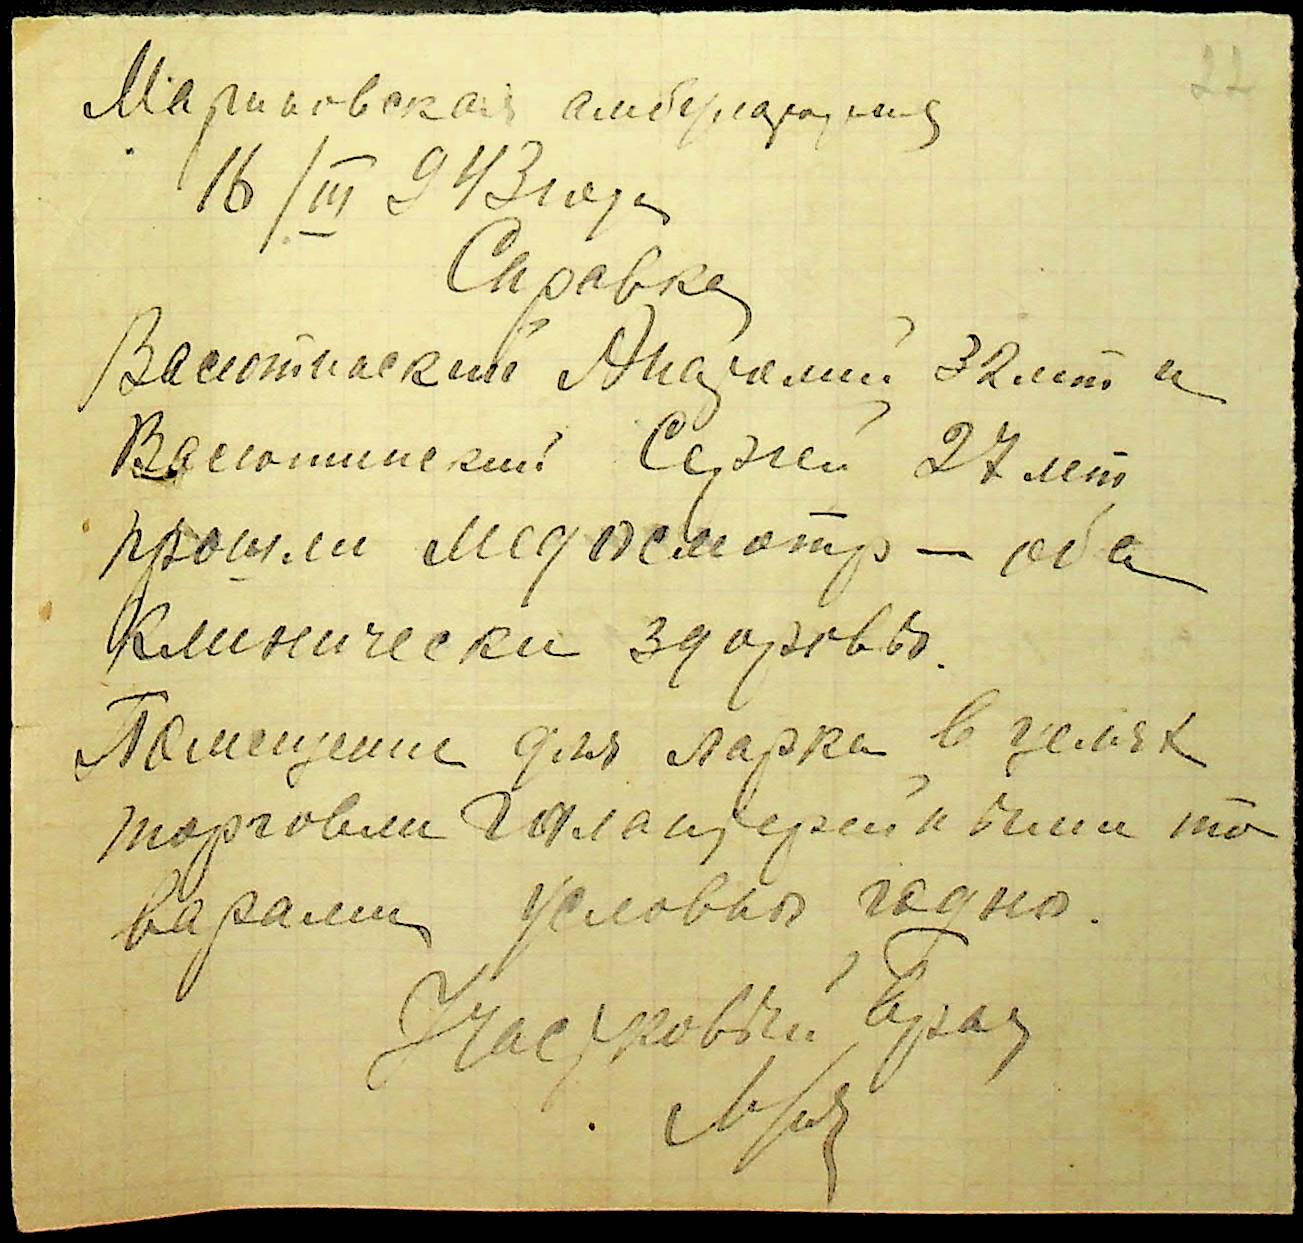 22
Мариновская амбулатория
16/III 943 года
Справка
Васютинский Анатолий 32 лет и
Васютинский Сергей 27 лет
прошли медосмотр — оба
клинически здоровы.
Помещение для ларка в целях
торговли галантерейными то
варами условно годно.
Участковый Врач